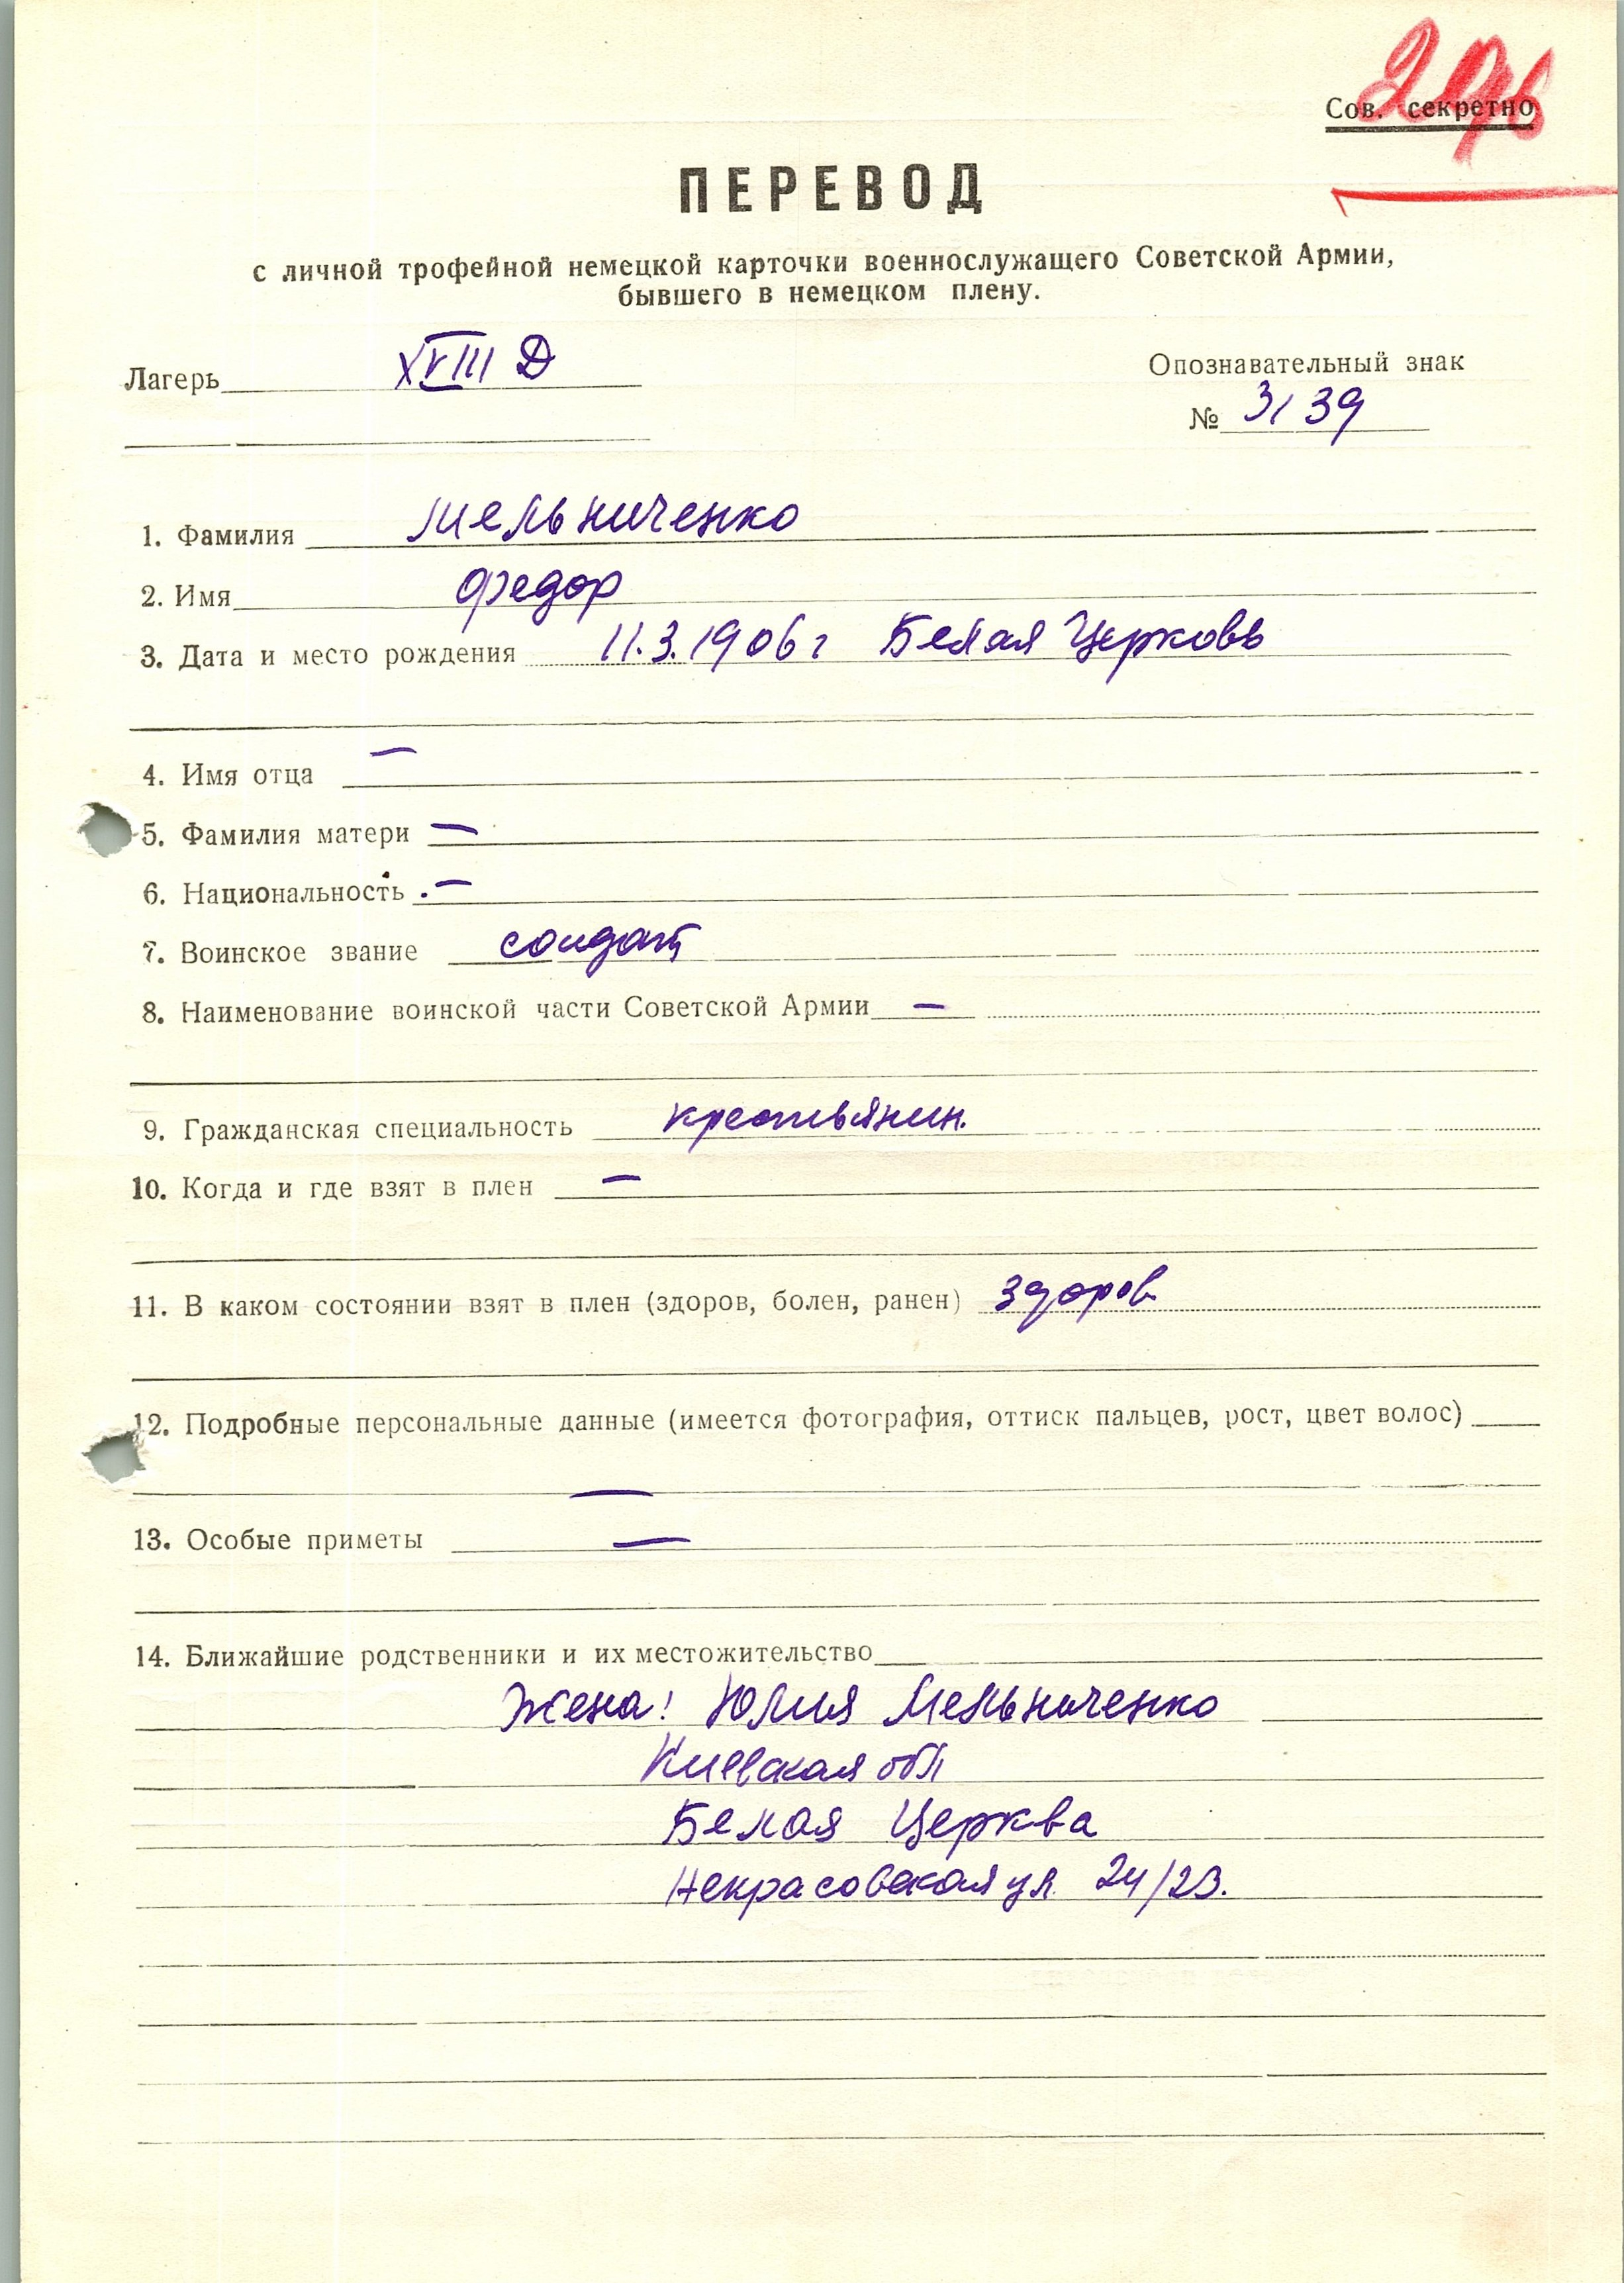 Сов. секретно
ПЕРЕВОД
с личной трофейной немецкой карточки военнослужащего Советской Армии,
бывшего в немецком плену.
Лагерь XVIII Д
Опознавательный знак
№ 3139
1. Фамилия Мельниченко
2. Имя Федор
3. Дата и место рождения 11.3.1906 г Белая Церковь
4. Имя отца —
5. Фамилия матери —
6. Национальность —
7. Воинское звание солдат
8. Наименование воинской части Советской Армии —
9. Гражданская специальность крестьянин.
10. Когда и где взят в плен —
11. В каком состоянии взят в плен (здоров, болен, ранен) здоров
12. Подробные персональные данные (имеется фотография, оттиск пальцев, рост, цвет волос)
—
13. Особые приметы —
14. Ближайшие родственники и их местожительство
Жена: Юлия Мельниченко
Киевская обл
Белая Церква
Некрасовская ул. 24/23.